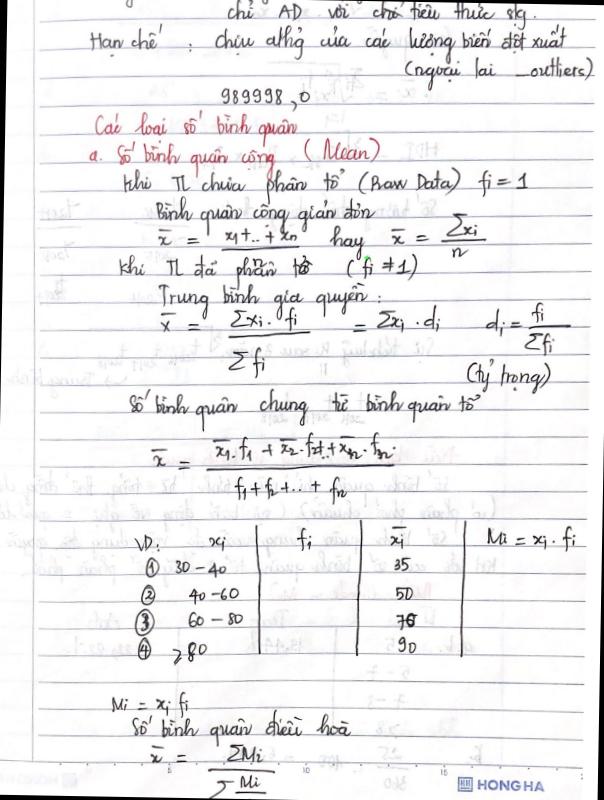 chỉ AD với chỉ tiêu thức slg.
Hạn chế : chịu ahg của các lượng biến đột xuất
(ngoại lai _outliers)
989998,0
Các loại số bình quân
a. Số bình quân cộng (Mean)
Khi TL chưa phân tổ (Raw Data) fi = 1
Bình quân cộng giản đơn
x̄ = (x1+..+xn)/n hay x̄ = Σxi/n
Khi TL đã phân tổ (fi ≠ 1)
Trung bình gia quyền :
x̄ = Σxi.fi / Σfi = Σxi.di di = fi/Σfi
(tỷ trọng)
Số bình quân chung từ bình quân tổ
x̄ = (x̄1.f1 + x̄2.f2+..+x̄n.fn) / (f1+f2+...+fn)
VD: xi fi x̄i Mi = xi.fi
① 30-40 35
② 40-60 50
③ 60-80 70
④ >80 90
Mi = xi fi
Số bình quân điều hoà
x̄ = ΣMi / Σ Mi
HH HONG HA